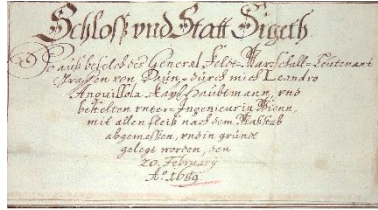 Schloß vnd Statt Sigeth
So auß befelch des General Feldt-Marschall-Leutenant
Graffen von Daun durch mich Leandro
Anguissola Kays. Haubtmann, vnd
bestelten vnter-Ingenieur in Wienn,
mit allen fleiß nach dem Maßstab
abgemessen, vnd in grundt
gelegt worden, den
20. February
Aº. 1689